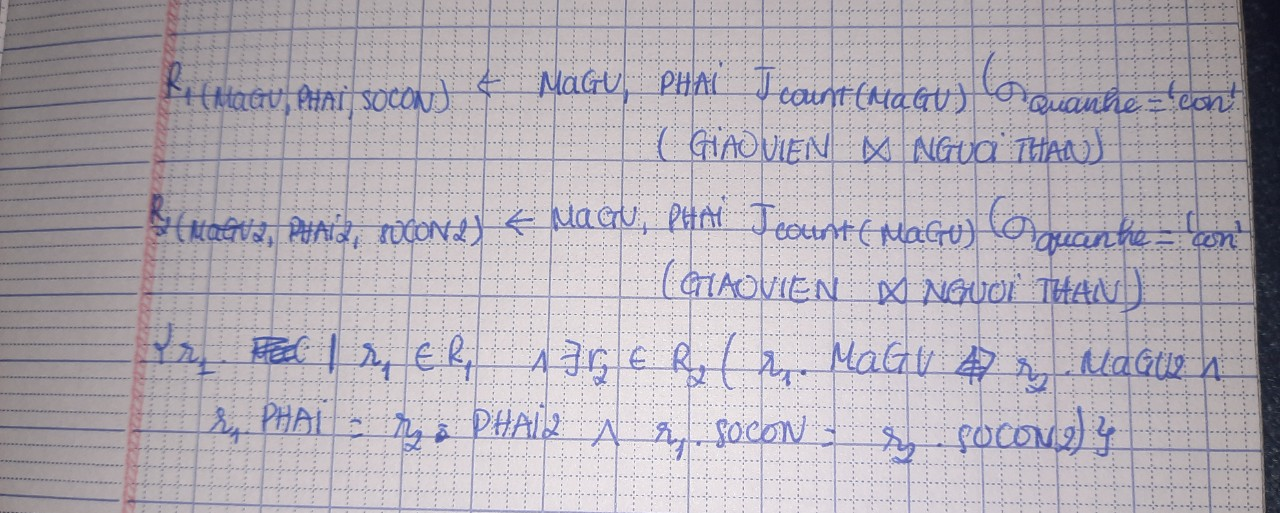 R1(MAGV, PHAI, SOCON) ← MAGV, PHAI ℑcount(MAGV) (σquanhe = 'con'
( GIAOVIEN ⋈ NGUOI THAN)
R2(MAGV2, PHAI2, SOCON2) ← MAGV, PHAI ℑcount(MAGV) (σquanhe = 'con'
(GIAOVIEN ⋈ NGUOI THAN)
{r1. | r1 ∈ R1 ∧ ∃r2 ∈ R2 ( r1. MAGV <> r2. MAGV2 ∧
r1. PHAI = r2. PHAI2 ∧ r1. SOCON = r2. SOCON2)}